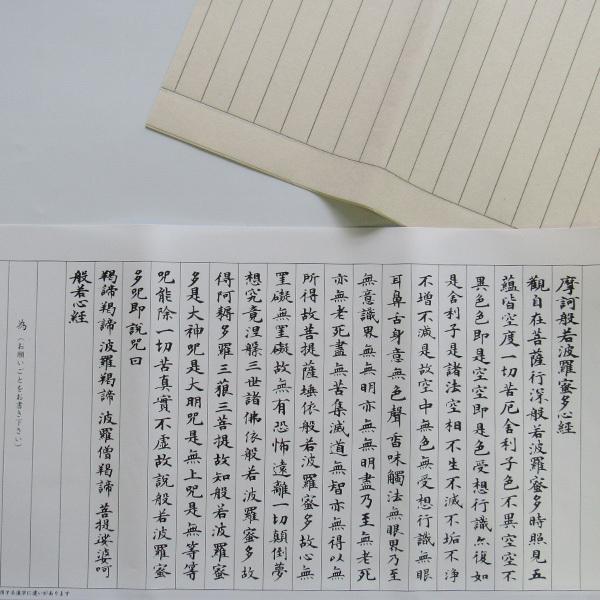 摩訶般若波羅蜜多心経
觀自在菩薩行深般若波羅蜜多時照見五
蘊皆空度一切苦厄舎利子色不異空空不
異色色即是空空即是色受想行識亦復如
是舎利子是諸法空相不生不滅不垢不浄
不増不減是故空中無色無受想行識無眼
耳鼻舌身意無色聲香味觸法無眼界乃至
無意識界無無明亦無無明盡乃至無老死
亦無老死盡無苦集滅道無智亦無得以無
所得故菩提薩埵依般若波羅蜜多故心無
罣礙無罣礙故無有恐怖遠離一切顛倒夢
想究竟涅槃三世諸佛依般若波羅蜜多故
得阿耨多羅三藐三菩提故知般若波羅蜜
多是大神咒是大明咒是無上咒是無等等
咒能除一切苦真實不虚故說般若波羅蜜
多咒即說咒曰
羯諦羯諦 波羅羯諦 波羅僧羯諦 菩提娑婆呵
般若心経
為(お願いごとをお書き下さい)
用する漢字に違いがあります